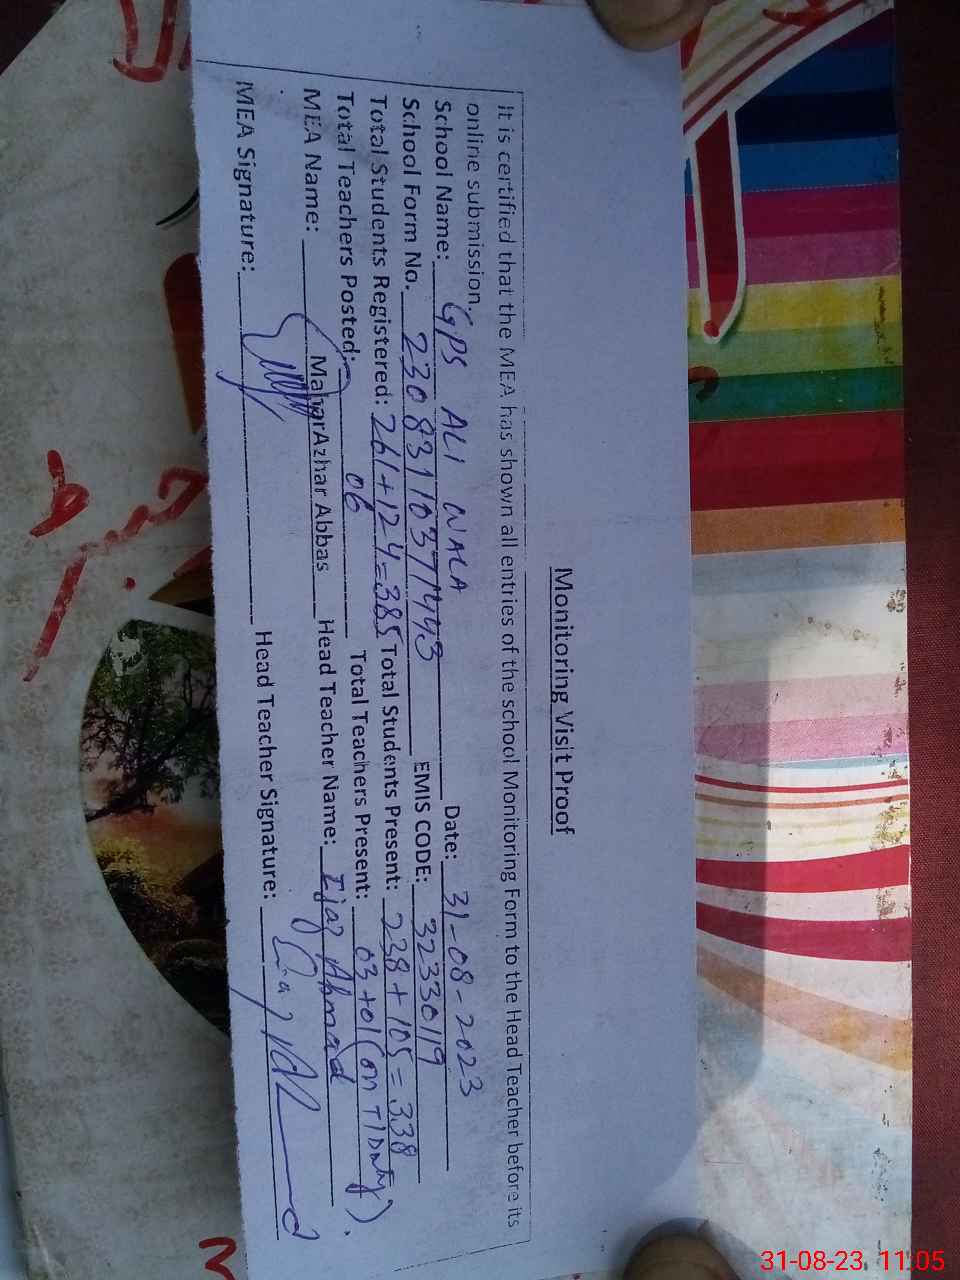 Monitoring Visit Proof
It is certified that the MEA has shown all entries of the school Monitoring Form to the Head Teacher before its
online submission.
School Name: GPS ALI WALA Date: 31-08-2023
School Form No. 230831103717443 EMIS CODE: 32330119
Total Students Registered: 261+124=385 Total Students Present: 238+105=338
Total Teachers Posted: 06 Total Teachers Present: 03+01(on T/Duty).
MEA Name: Mahar Azhar Abbas Head Teacher Name: Ijaz Ahmad
MEA Signature: Head Teacher Signature:
31-08-23 11:05